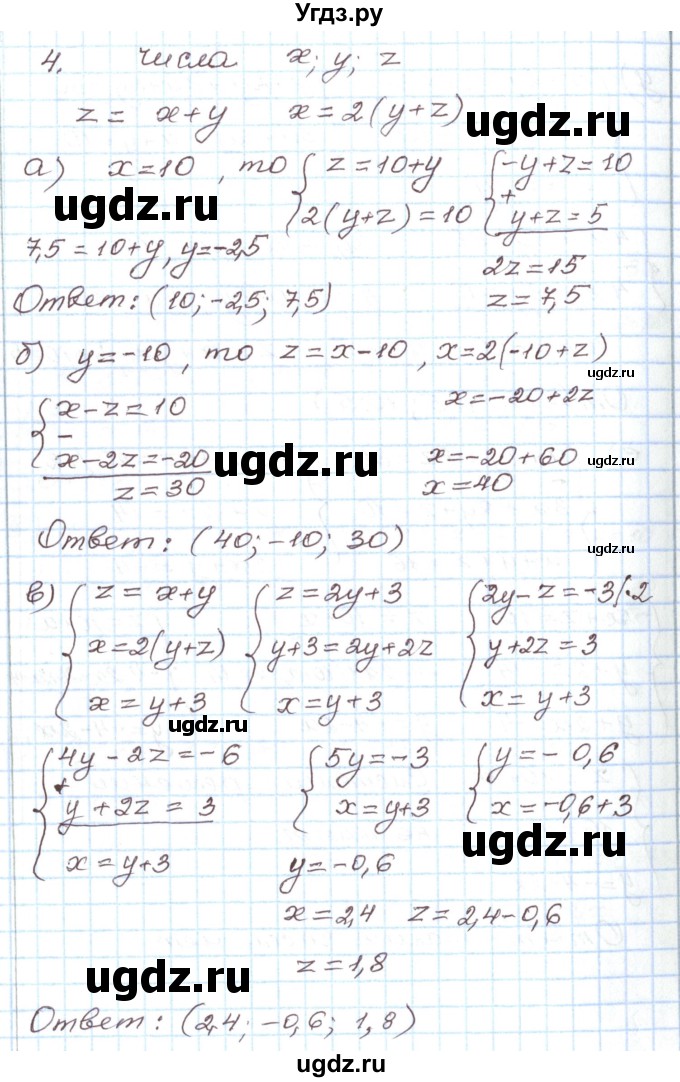 Угдз.ру
4. Числа x; y; z
z = x+y x=2(y+z)
ugdz.ru
а) x=10, то { z=10+y { -y+z=10
{ 2(y+z)=10 + y+z=5
ugdz.ru
7,5=10+y, y=-2,5 2z=15
Ответ: (10; -2,5; 7,5) z=7,5
б) y=-10, то z=x-10, x=2(-10+z)
ugdz.ru
{ x-z=10 x=-20+2z
-
x-2z=-20 x=-20+60
ugdz.ru
z=30 x=40
Ответ: (40; -10; 30)
ugdz.ru
в) { z=x+y { z=2y+3 { 2y-z=-3 |·2
x=2(y+z) y+3=2y+2z y+2z=3
x=y+3 x=y+3 x=y+3
ugdz.ru
{ 4y-2z=-6 { 5y=-3 { y=-0,6
+ y+2z=3 x=y+3 x=-0,6+3
ugdz.ru
x=y+3 y=-0,6
x=2,4 z=2,4-0,6
z=1,8
ugdz.ru
Ответ: (2,4; -0,6; 1,8)
ugdz.ru